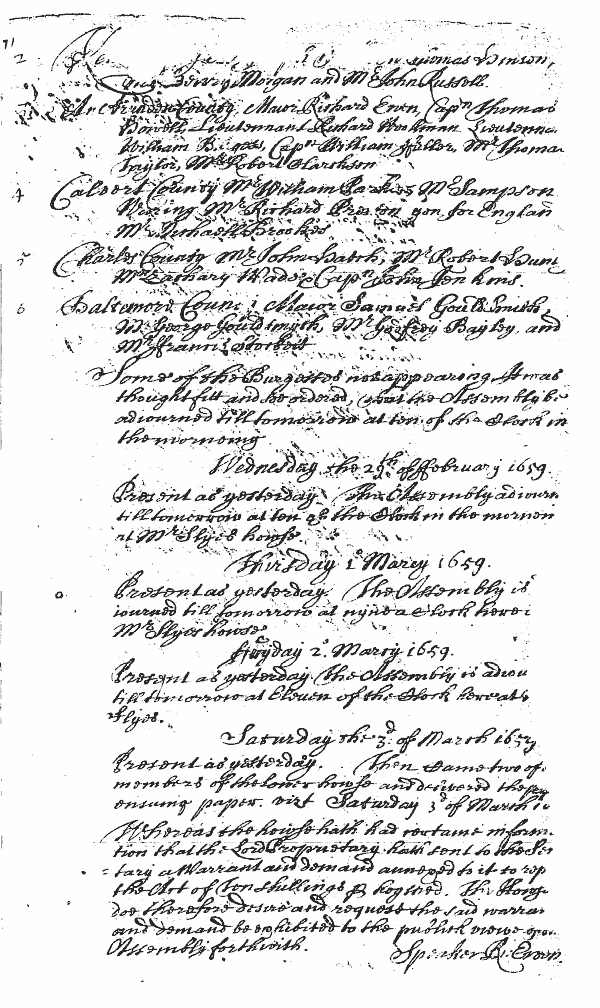 91
2 Thomas Hinson,
Henry Morgan and Mr John Russell.
Arrundell County Maior Richard Ewen, Capn Thomas
Howell, Lieutennant Richard Woolman Lieutenna
William B Capn William ffuller, Mr Thomas
Taylor, Mr Robert Clarkson
4 Calvert County Mr William Parker Mr Sampson
Waring Mr Richard Preston gon for Englan
Mr Michaell Brookes
5 Charles County Mr John Hatch, Mr Robert Hunt
Mr Zachary Wade Capn John Jenkins.
6 Baltemore Coun Maior Samuel Gouldsmith,
Mr George Gouldsmyth, Mr Godfrey Bayley, and
Mr ffrancis Stockett
Some of the Burgesses not appearing It was
thought fitt and be ordered, that the Assembly be
adiourned till tomorrow at ten of the Clock in
the morneing
Wednesday the 29th of ffebruary 1659.
Present as yesterday. The Assembly adiourn
till tomorrow at ten of the Clock in the mornein
at Mr Slyes howse.
Thursday 1o March 1659.
Present as yesterday. The Assembly is
iourned till tomorrow at nyne a Clock here
Mr Slyes howse
ffryday 2o March 1659.
Present as yesterday The Assembly is adiou
till tomorrow at Eleven of the Clock here att
Slyes.
Saturday the 3d of March 1659
Present as yesterday. Then came two of
members of the lower howse and delivered the
ensuing paper. vizt Saturday 3d of March
Whereas the howse hath had certaine inform-
tion that the Lord Proprietary hath sent to the Se
tary a Warrant and demand annexed to it to rep
the Act of ten shillings p hogshed. The Howse
doe therefore desire and request the said warran
and demand be exhibited to the publick viewe
Assembly forthwith. Speaker R: Ewen.